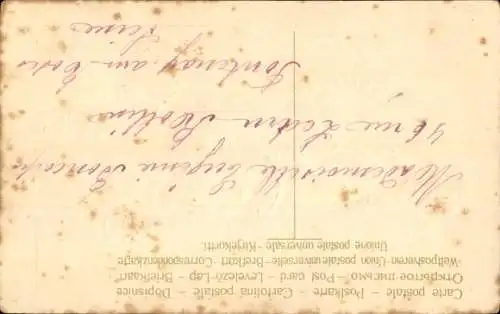 Carte postale – Postkarte – Cartolina postale – Dopisnice
Открытое письмо – Post card – Levelező-Lap – Briefkaart
Weltpostverein · Union postale universelle · Brefkort · Correspondenzkarte
Unione postale universale · Kirjekortti
Mademoiselle Eugénie
46 rue Ledru Rollin
Fontenay aux Roses
Seine